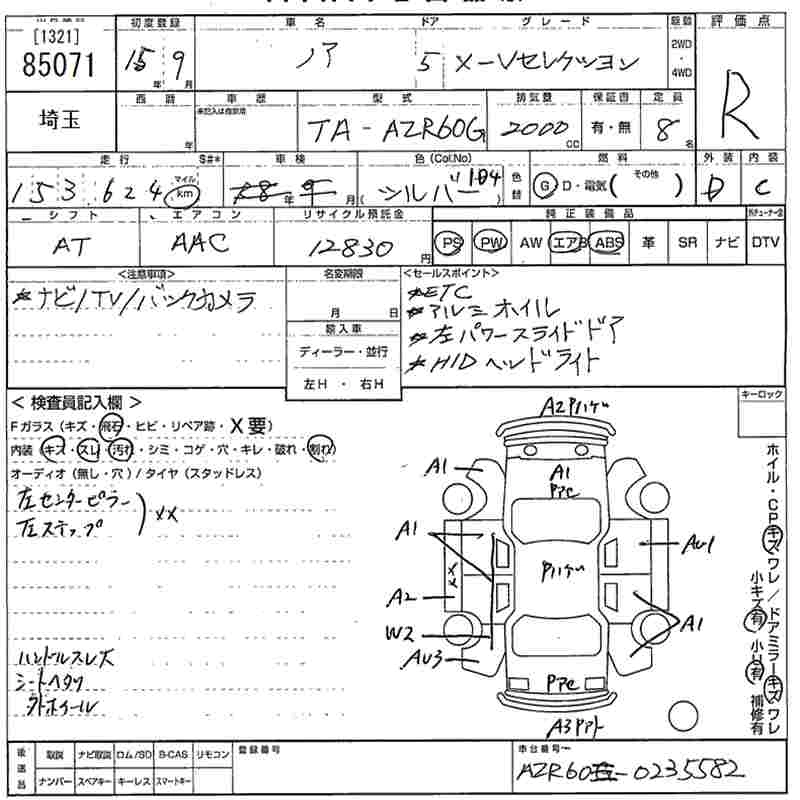 [1321]
85071
初度登録 車名 ドア グレード 駆動 評価点
15年 9月 ノア 5 X-Vセレクション 2WD・4WD R
埼玉
西暦 車歴 型式 排気量 保証書 定員
年 未記入は自家用 TA-AZR60G 2000cc 有・無 8名
走行 S#* 車検 色(Col.No) 色替 燃料 外装 内装
153,624 マイル km 年 月 (シルバー 1D4) G D・電気(その他) D C
シフト エアコン リサイクル預託金 純正装備品
AT AAC 12830円 PS PW AW エアB ABS 革 SR ナビ DTV
<注意事項> 名変期限 <セールスポイント>
*ナビ/TV/バックカメラ
月 日
輸入車
ディーラー・並行
左H・右H
*ETC
*アルミホイル
*左パワースライドドア
*HIDヘッドライト
<検査員記入欄>
Fガラス(キズ・飛石・ヒビ・リペア跡・X要)
内装(キズ・スレ・汚れ・シミ・コゲ・穴・キレ・破れ・割れ)
オーディオ(無し・穴)/タイヤ(スタッドレス)
左センターピラー
左ステップ
)XX
ハンドルスレ大
シートヘタリ
外ホイール
キーロック
A2Pハゲ
A1
A1
PPC
A1
AU1
Pハゲ
XX
A2
A1
W2
AU3
PPC
ホイル・CPキズワレ/ドアミラーキズワレ
小キズ有 小U有 補修有
後送品 取説 ナビ取説 ロム/SD B-CAS リモコン 登録番号 車台番号
ナンバー スペアキー キーレス スマートキー AZR60-0235582